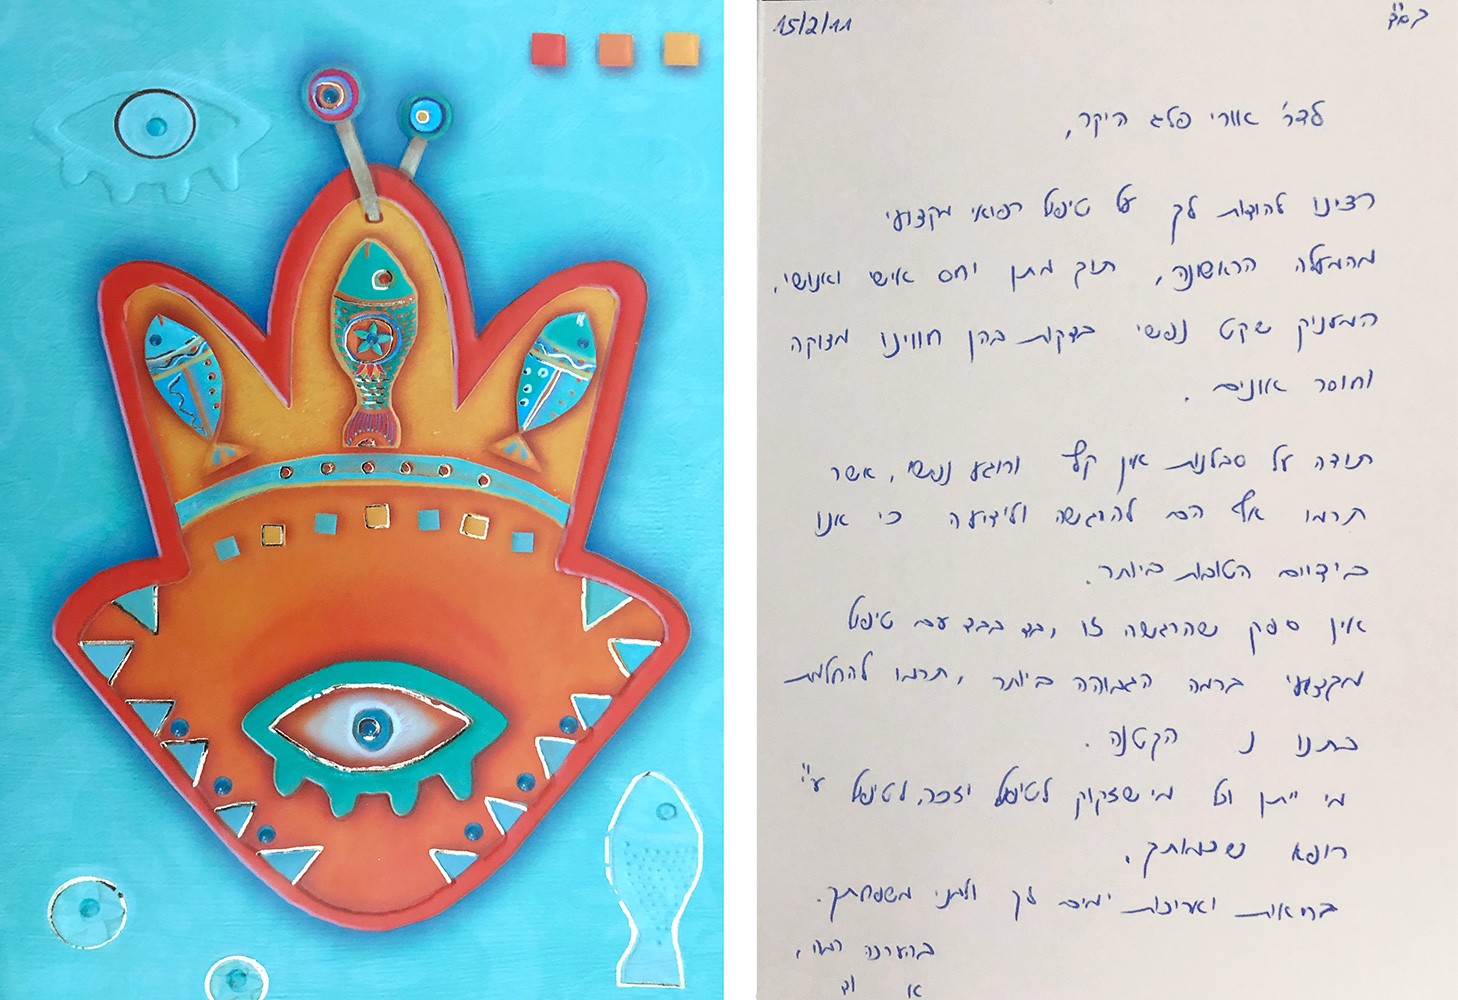 בס"ד
15/2/11
לדר' אורי פלג היקר,
רצינו להודות לך על טיפול רפואי מקצועי
מהמעלה הראשונה, תוך מתן יחס אישי ואנושי,
המעניק שקט נפשי בדקות בהן חווינו מצוקה
וחוסר אונים.
תודה על סבלנות אין קץ ורוגע נפשי, אשר
תרמו אף הם להרגשה ולידיעה כי אנו
בידיים הטובות ביותר.
אין ספק שהרגשה זו, בד בבד עם טיפול
מקצועי ברמה הגבוהה ביותר, תרמו להחלמת
בתנו נ הקטנה.
מי ייתן וכל מי שזקוק לטיפול יזכה לטיפול ע"י
רופא שכמותך.
בריאות ואריכות ימים לך ולבני משפחתך.
בהערכה רבה,
א וד